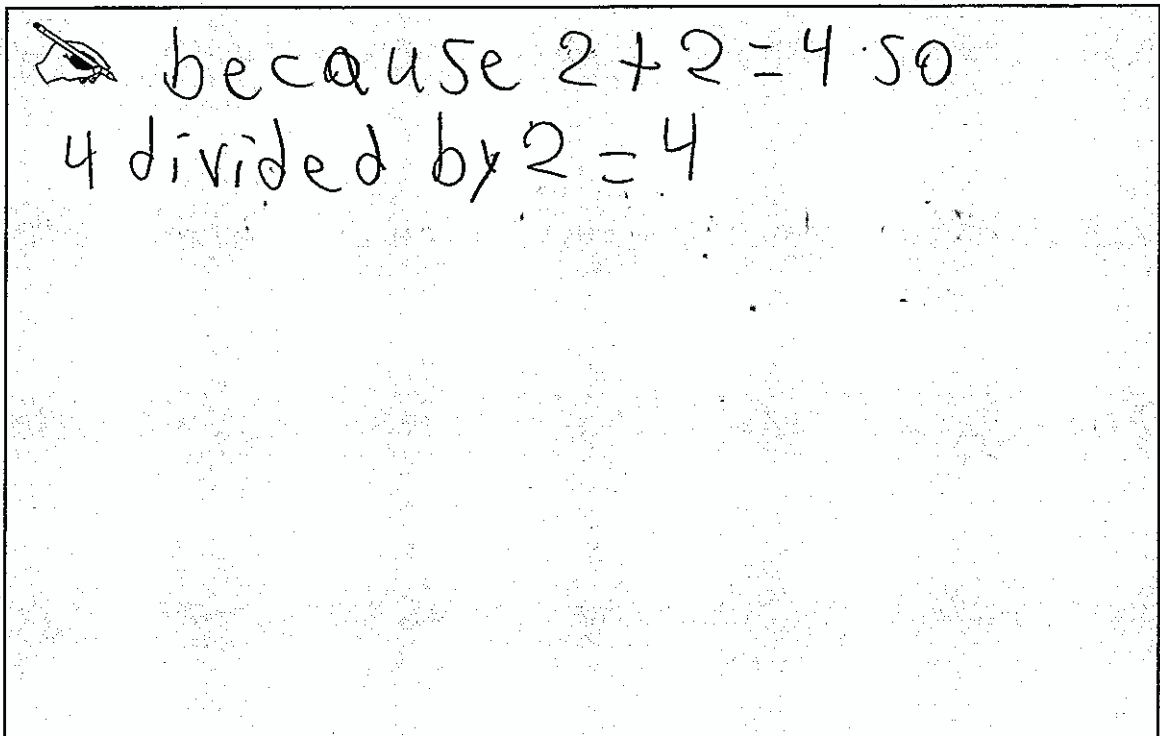 because 2+2=4 so
4 divided by 2 = 4